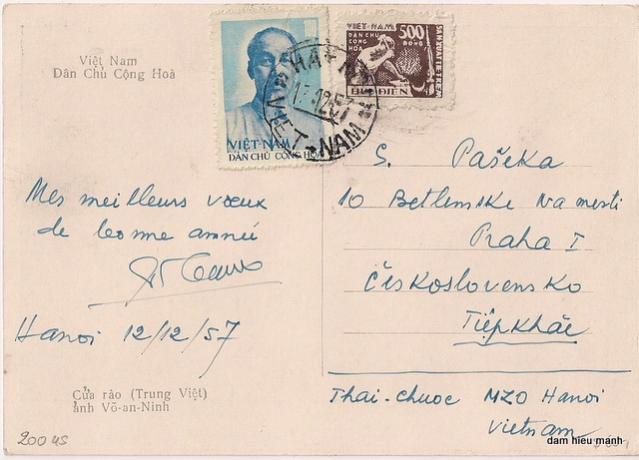 Việt Nam
Dân Chủ Cộng Hoà
VIỆT-NAM
DÂN CHỦ CỘNG HOÀ
VIỆT-NAM
DÂN CHỦ
CỘNG
HOÀ
500
ĐỒNG
SẢN XUẤT
BƯU ĐIỆN
HA-NOI
12 57
VIET-NAM
Mes meilleurs vœux
de bonne année
Hanoi 12/12/57
Cửa rào (Trung Việt)
ảnh Võ-an-Ninh
S. Pašeka
10 Betlemske Namesti
Praha I
Československo
Tiệpkhắc
Thai-chuoc MZO Hanoi
Vietnam
200 US
dam hieu manh